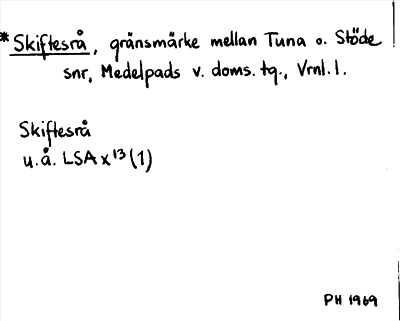 *Skiftesrå, gränsmärke mellan Tuna o. Stöde
snr, Medelpads v. doms. tg., Vrnl. l.
Skiftesrå
u.å. LSA x¹³ (1)
PH 1969